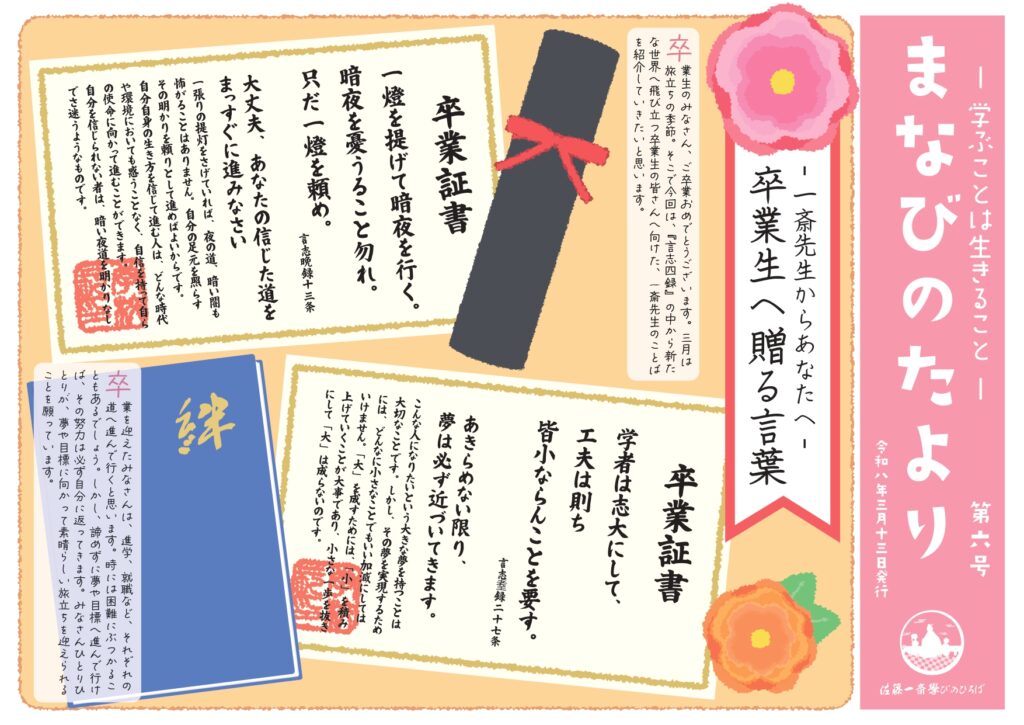 ― 学ぶことは生きること ―
まなびのたより
第六号
令和八年三月十三日発行
佐藤一斎學びのひろば
- 一斎先生からあなたへ -
卒業生へ贈る言葉
卒業生のみなさん、ご卒業おめでとうございます。三月は
旅立ちの季節。そこで今回は、『言志四録』の中から新た
な世界へ飛び立つ卒業生の皆さんへ向けた、一斎先生のことば
を紹介していきたいと思います。
卒業証書
一燈を提げて暗夜を行く。
暗夜を憂うること勿れ。
只だ一燈を頼め。
言志晩録十三条
大丈夫、あなたの信じた道を
まっすぐに進みなさい
一張りの提灯をさげていれば、夜の道、暗い闇も
怖がることはありません。自分の足元を照らす
その明かりを頼りとして進めばよいからです。
自分自身の生き方を信じて進む人は、どんな時代
や環境においても惑うことなく、自信を持って自ら
の使命に向かって進むことができます。
自分を信じられない者は、暗い夜道を明かりなし
でさ迷うようなものです。
卒業証書
学者は志大にして、
工夫は則ち
皆小ならんことを要す。
言志耋録二十七条
あきらめない限り、
夢は必ず近づいてきます。
こんな人になりたいという大きな夢を持つことは
大切なことです。しかし、その夢を実現するため
には、どんなに小さなことでもいい加減にしては
いけません。「大」を成すためには、「小」を積み
上げていくことが大事であり、小さな一歩を抜き
にして「大」は成らないのです。
絆
卒業を迎えたみなさんは、進学、就職など、それぞれの
道へ進んで行くと思います。時には困難にぶつかるこ
ともあるでしょう。しかし、諦めずに夢や目標へ進んで行け
ば、その努力は必ず自分に返ってきます。みなさんひとりひ
とりが、夢や目標に向かって素晴らしい旅立ちを迎えられる
ことを願っています。